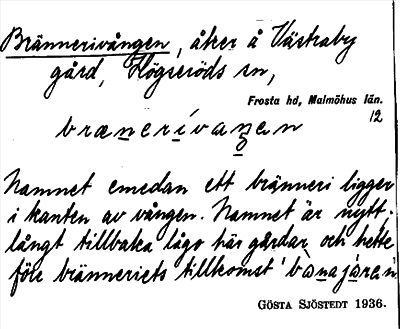 Brännerivången, åker å Västraby
gård, Högseröds sn,
Frosta hd, Malmöhus län.
12
brænerívaŋen
Namnet emedan ett bränneri ligger
i kanten av vången. Namnet är nytt;
långt tillbaka lågo här gårdar och hette
före bränneriets tillkomst
GÖSTA SJÖSTEDT 1936.